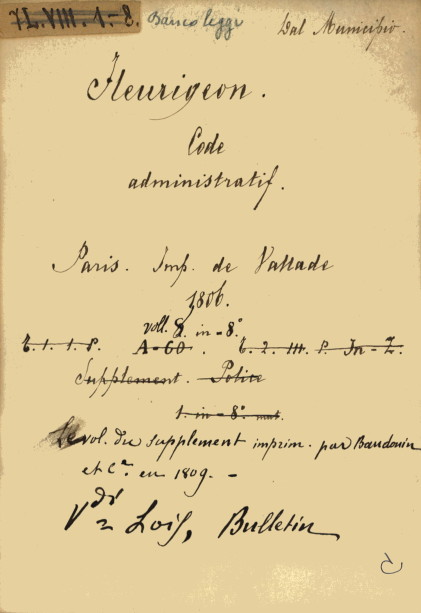 7L.VIII.1-8. Banco leggi Dal Municipio.
Fleurigeon.
Code
administratif.
Paris. Imp. de Vallade
1806.
voll. 8. in-8.°
A-60.
Supplement. Police
1. in-8.°
Le vol. du supplement imprim. par Baudouin
et C.e en 1809. -
Vdi Lois, Bulletin